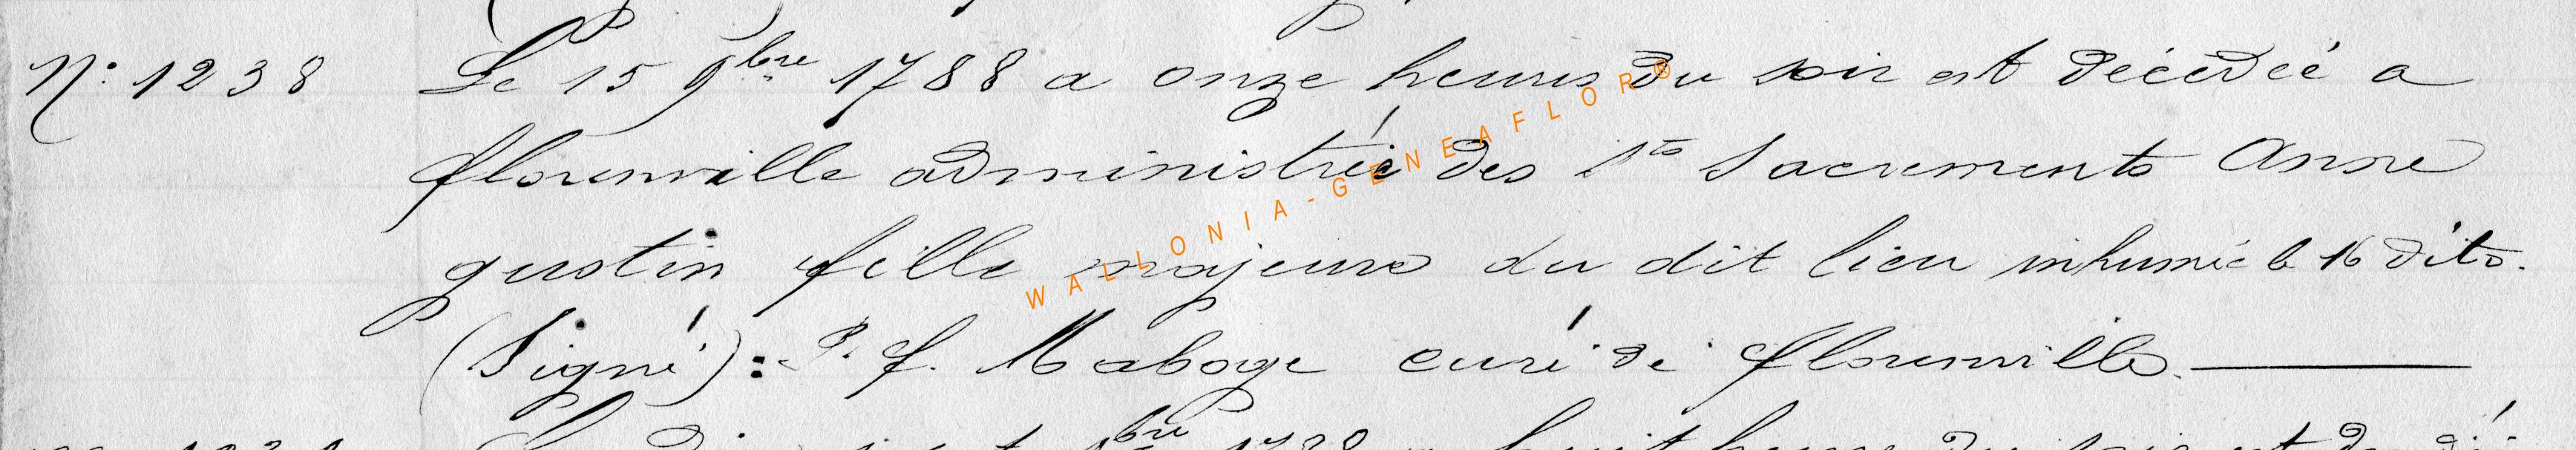 N: 1238 Le 15 9bre 1788 a onze heures du soir est décédée a
florenville administrée des Sts Sacrements Anne
gustin fille majeure du dit lieu inhumée le 16 dito.
(Signé): P. f. Maboge curé de florenville.
WALLONIA-GENEAFLOR®